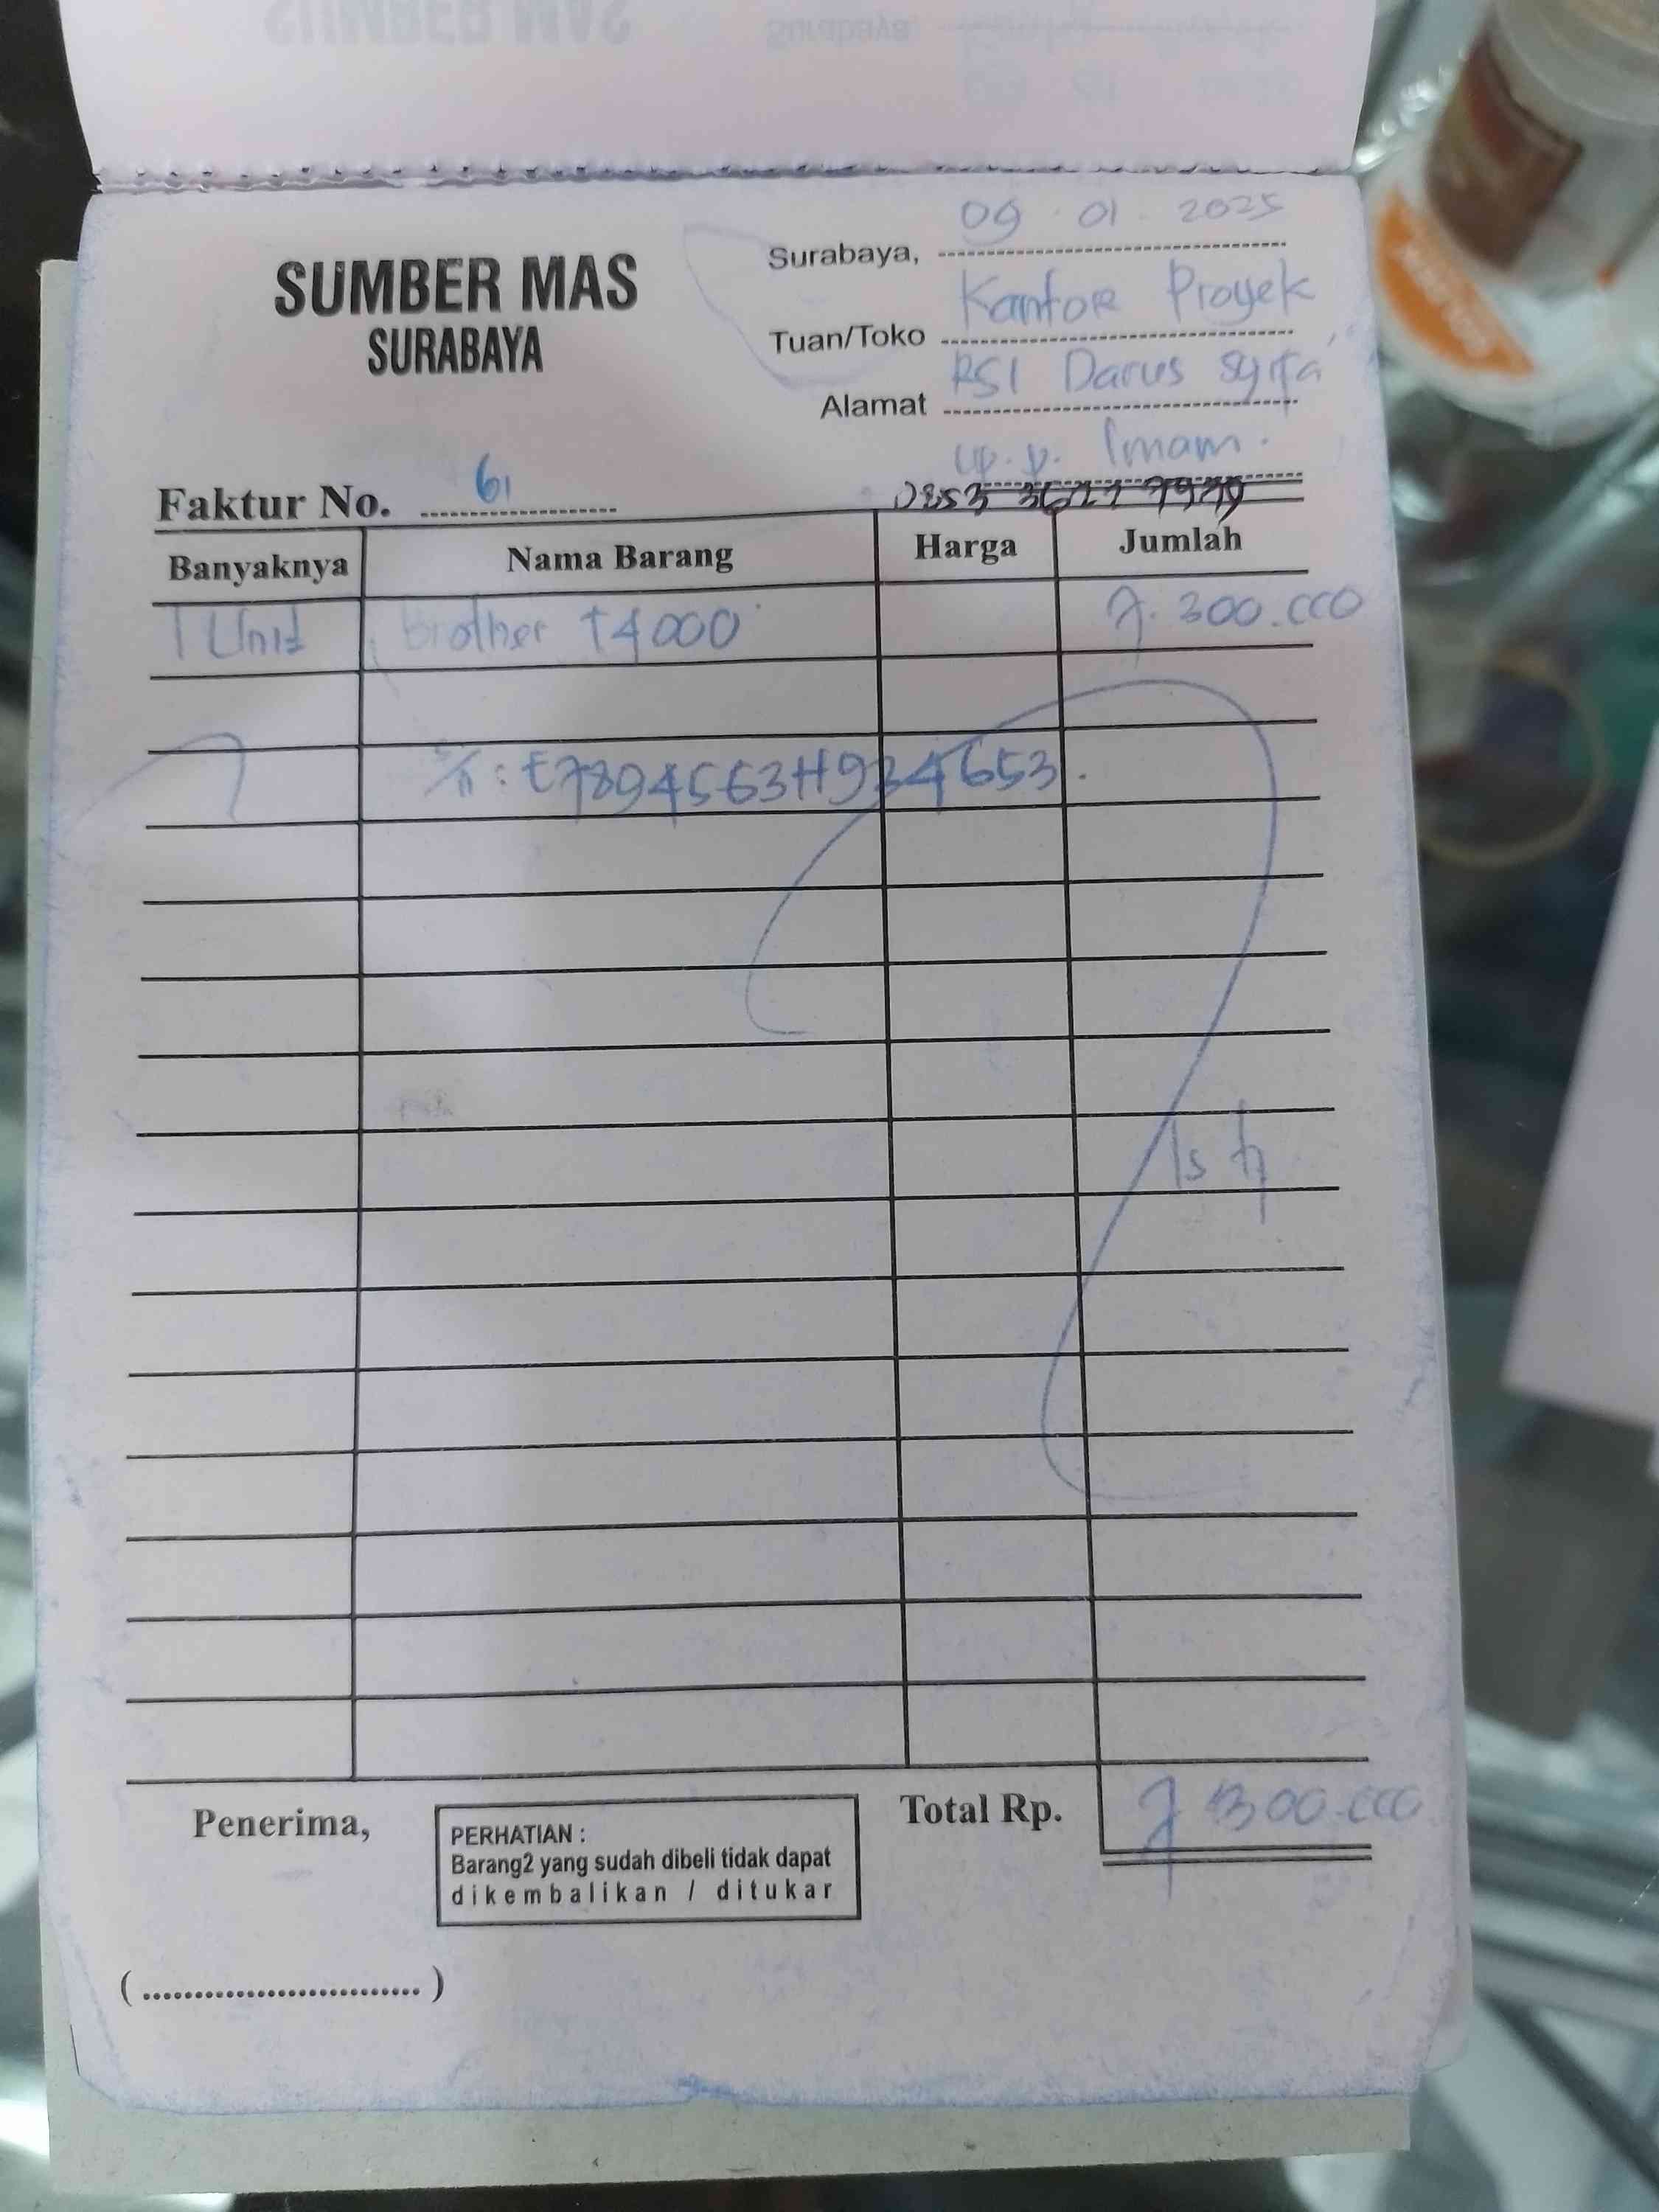 SUMBER MAS
SURABAYA
Surabaya, 09 . 01 . 2025
Tuan/Toko Kantor Proyek
Alamat RSI Darus Syifa'
up. p. Imam.
Faktur No. 61
0853
Banyaknya Nama Barang Harga Jumlah
1 Unit Brother T4000 7.300.000
S/n : E7894563H934653.
Total Rp. 7.300.000
Penerima,
PERHATIAN :
Barang2 yang sudah dibeli tidak dapat
dikembalikan / ditukar
(........................... )